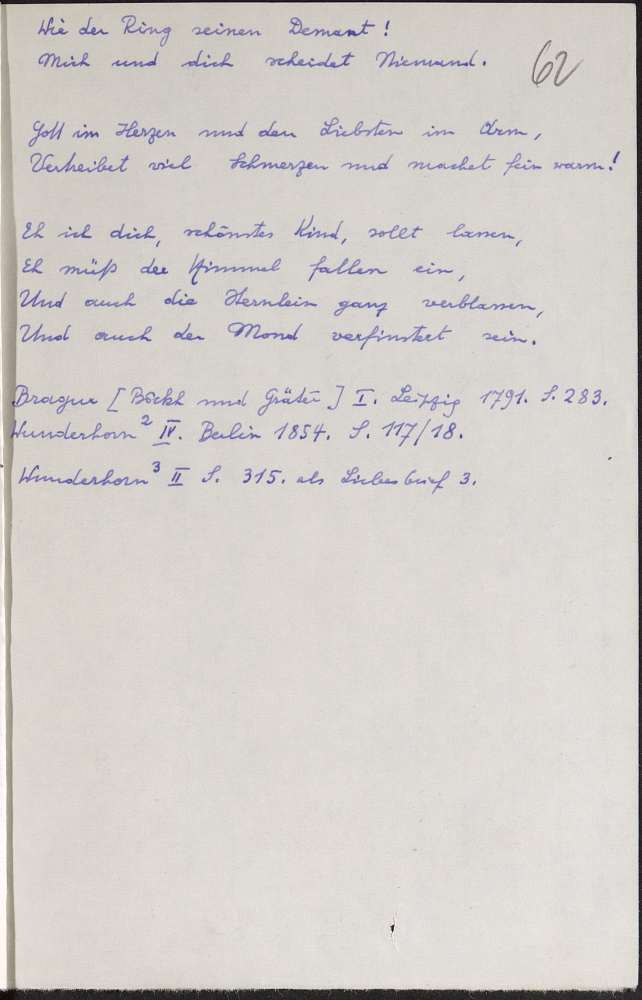 Wie der Ring seinen Demant!
Mich und dich scheidet Niemand.
62
Gott im Herzen und den Liebsten im Arm,
Vertreibet viel Schmerzen und machet fein warm!
Eh ich dich, schönstes Kind, sollt lassen,
Eh müß der Himmel fallen ein,
Und auch die Sternlein ganz verblassen,
Und auch der Mond verfinstert sein.
Bragur [Böckh und Gräter] I. Leipzig 1791. S. 283.
Wunderhorn² IV. Berlin 1854. S. 117/18.
Wunderhorn³ II S. 315. als Liebesbrief 3.